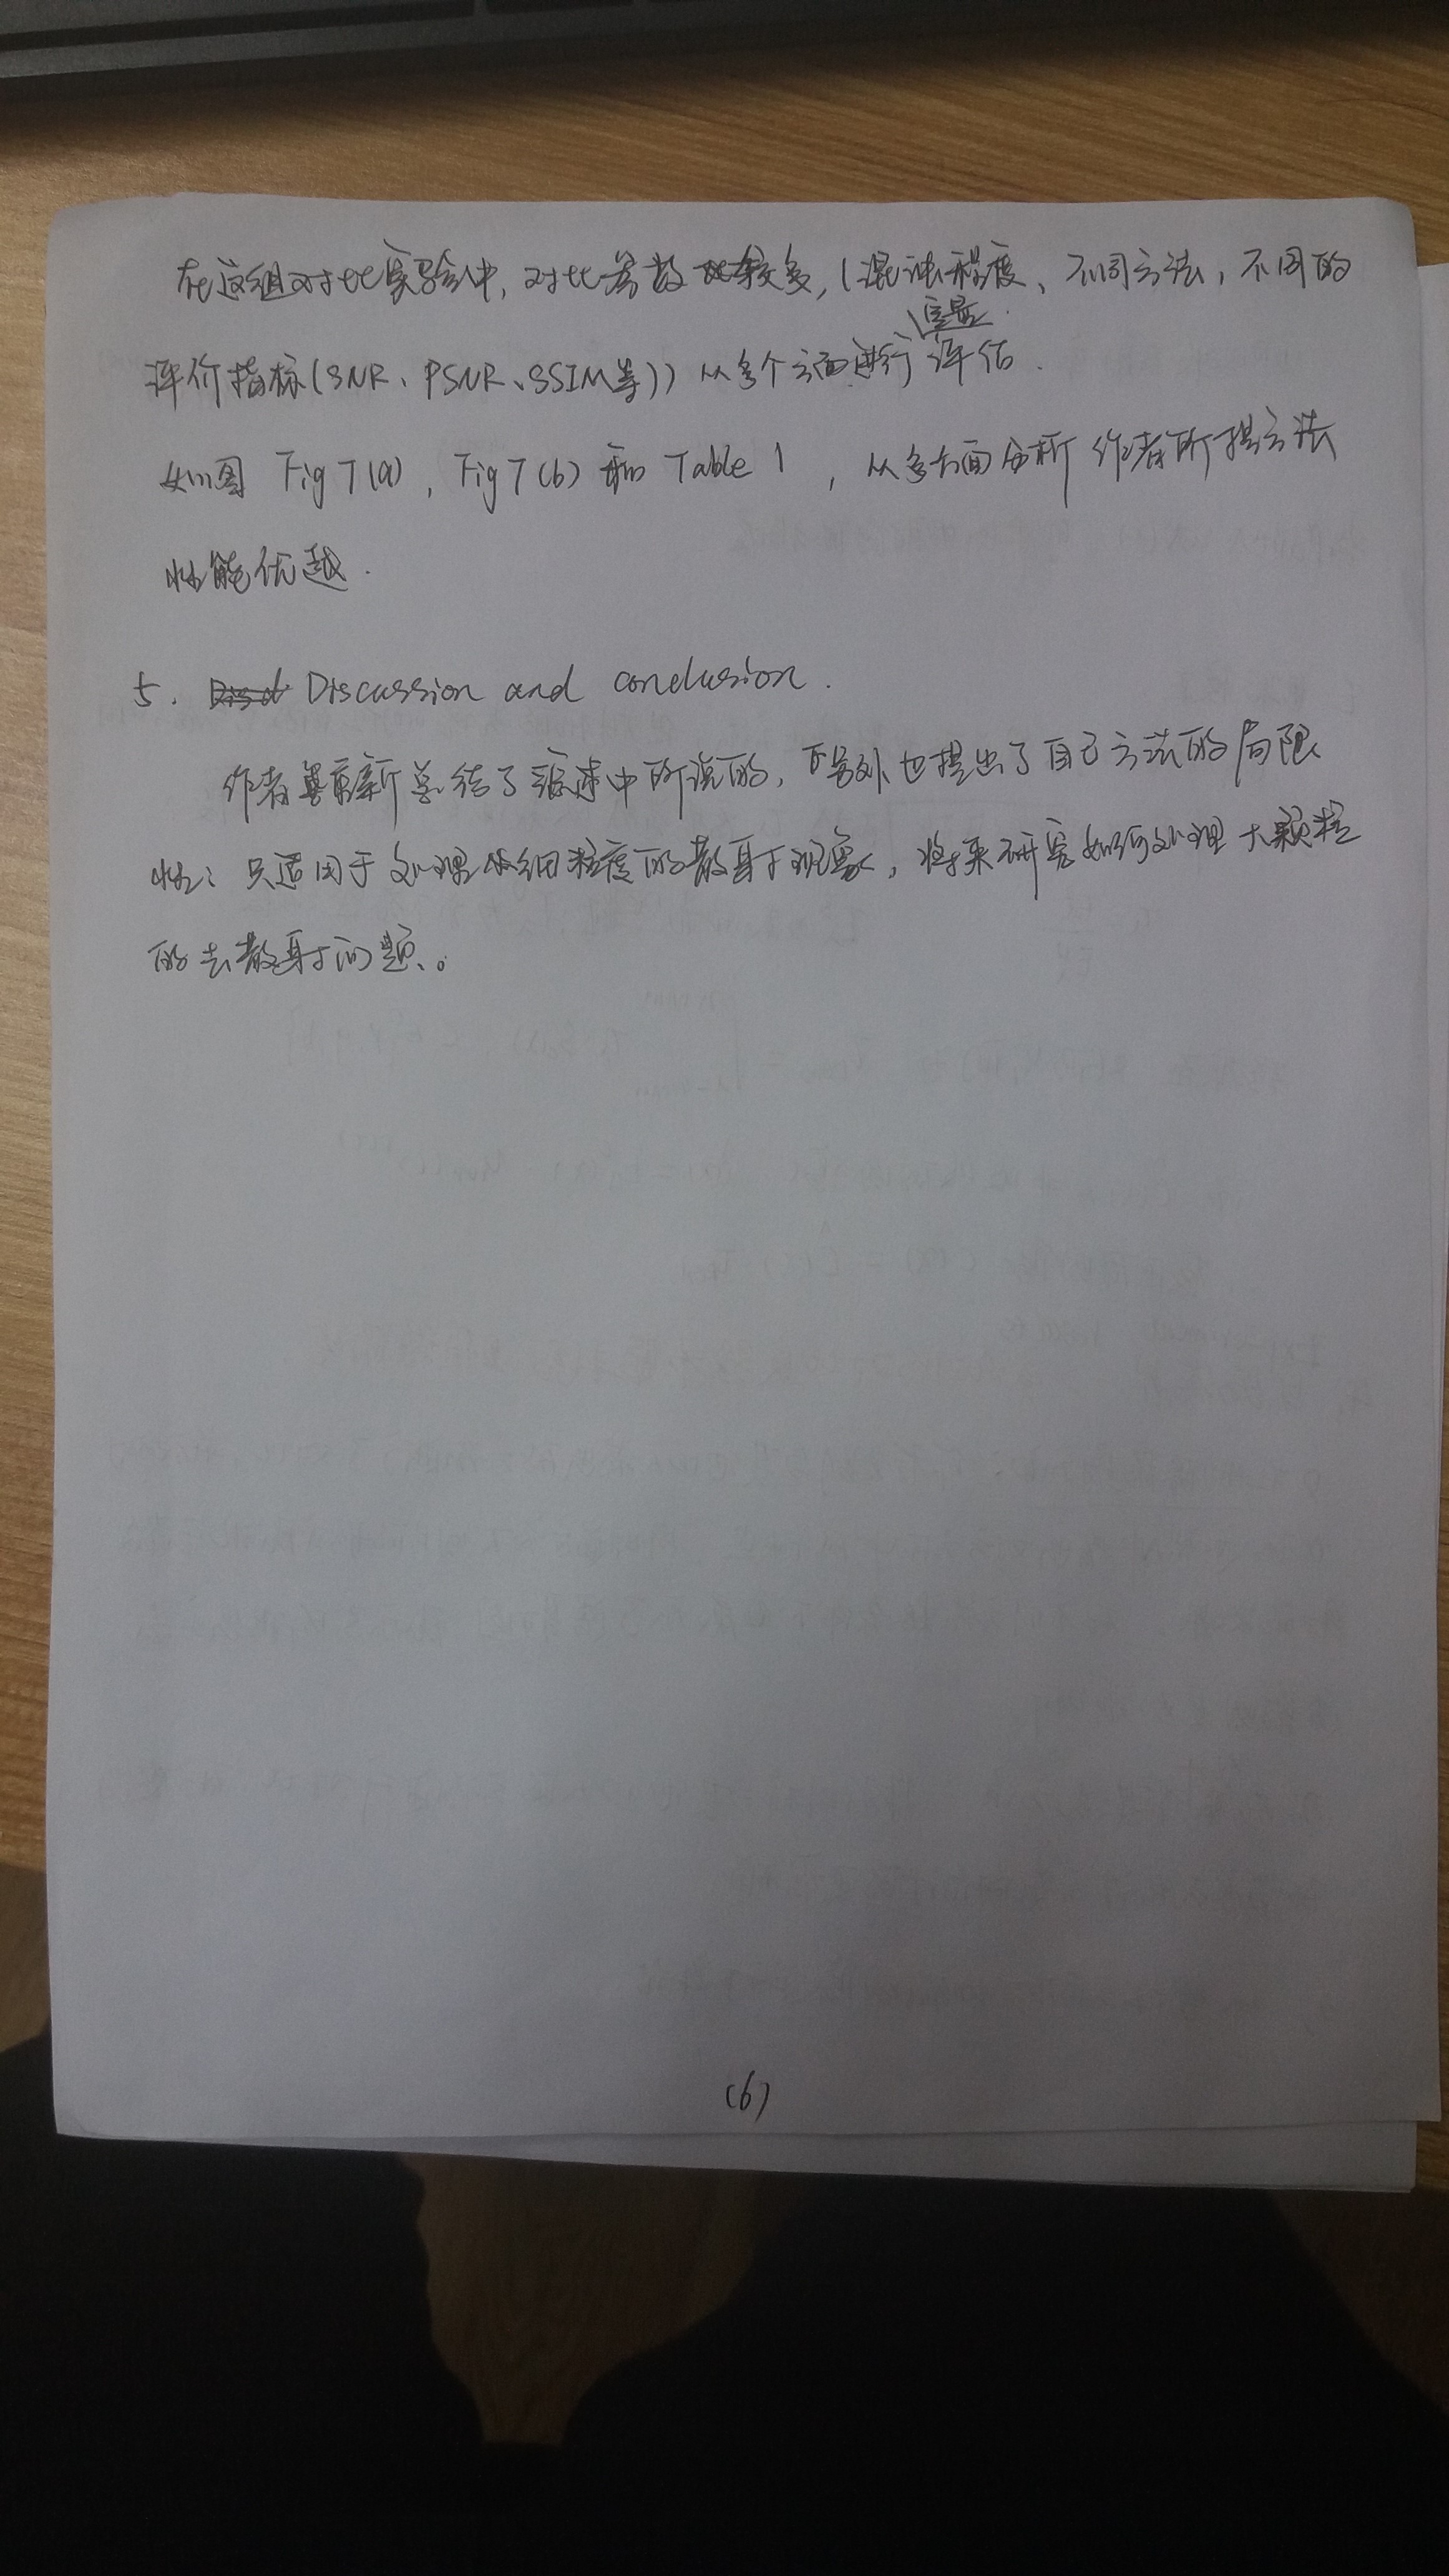 在这组对比实验中,对比参数比较多,(混浊程度、不同方法,不同的
定量
评价指标(SNR、PSNR、SSIM等))从多个方面进行评估.
如图 Fig 7(a),Fig 7(b) 和 Table 1 ,从多方面分析作者所提方法
性能优越.
5. Discussion and conclusion.
作者重新总结了综述中所说的,另外也提出了自己方法的局限
性:只适用于处理细粒度的散射现象,将来研究如何处理大颗粒
的去散射问题。
(6)